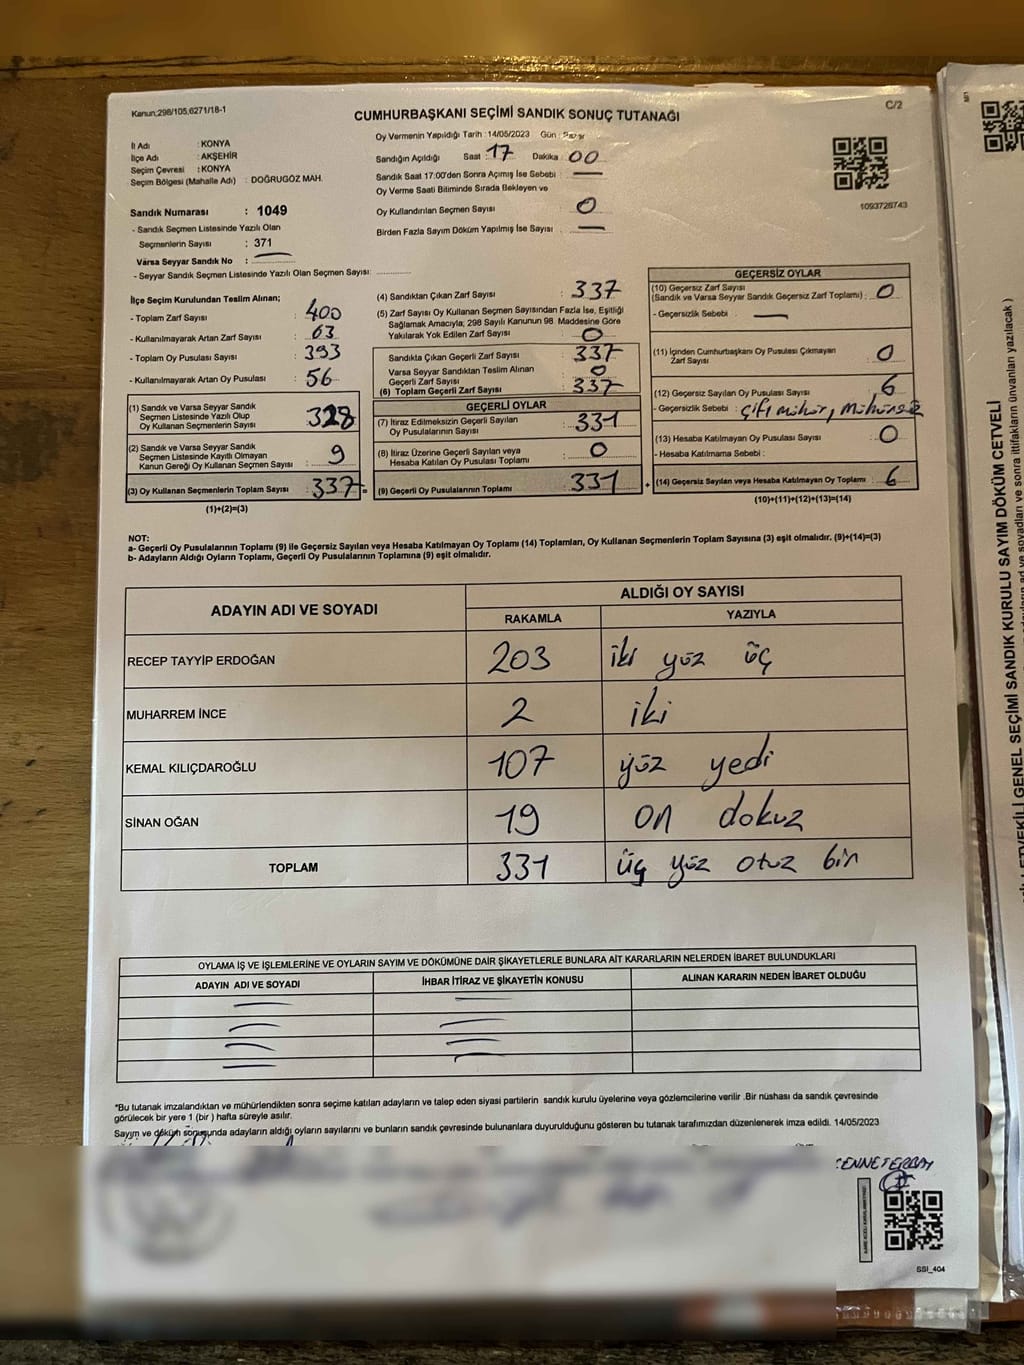 Kanun;298/105;6271/18-1
C/2
CUMHURBAŞKANI SEÇİMİ SANDIK SONUÇ TUTANAĞI
İl Adı : KONYA
İlçe Adı : AKŞEHİR
Seçim Çevresi : KONYA
Seçim Bölgesi (Mahalle Adı) : DOĞRUGÖZ MAH.
Sandık Numarası : 1049
- Sandık Seçmen Listesinde Yazılı Olan
Seçmenlerin Sayısı : 371
Varsa Seyyar Sandık No :
- Seyyar Sandık Seçmen Listesinde Yazılı Olan Seçmen Sayısı:
Oy Vermenin Yapıldığı Tarih :14/05/2023 Gün : Pazar
Sandığın Açıldığı Saat : 17 Dakika 00
Sandık Saat 17:00'den Sonra Açımış İse Sebebi : —
Oy Verme Saati Bitiminde Sırada Bekleyen ve
Oy Kullandırılan Seçmen Sayısı : 0
Birden Fazla Sayım Döküm Yapılmış İse Sayısı : —
1093728743
İlçe Seçim Kurulundan Teslim Alınan;
- Toplam Zarf Sayısı : 400
- Kullanılmayarak Artan Zarf Sayısı : 63
- Toplam Oy Pusulası Sayısı : 393
- Kullanılmayarak Artan Oy Pusulası : 56
(1) Sandık ve Varsa Seyyar Sandık
Seçmen Listesinde Yazılı Olup
Oy Kullanan Seçmenlerin Sayısı : 328
(2) Sandık ve Varsa Seyyar Sandık
Seçmen Listesinde Kayıtlı Olmayan
Kanun Gereği Oy Kullanan Seçmen Sayısı : 9
(3) Oy Kullanan Seçmenlerin Toplam Sayısı : 337 =
(1)+(2)=(3)
(4) Sandıktan Çıkan Zarf Sayısı : 337
(5) Zarf Sayısı Oy Kullanan Seçmen Sayısından Fazla İse, Eşitliği
Sağlamak Amacıyla; 298 Sayılı Kanunun 98. Maddesine Göre
Yakılarak Yok Edilen Zarf Sayısı : 0
Sandıkta Çıkan Geçerli Zarf Sayısı : 337
Varsa Seyyar Sandıktan Teslim Alınan
Geçerli Zarf Sayısı : 0
(6) Toplam Geçerli Zarf Sayısı : 337
GEÇERLİ OYLAR
(7) İtiraz Edilmeksizin Geçerli Sayılan
Oy Pusulalarının Sayısı : 331
(8) İtiraz Üzerine Geçerli Sayılan veya
Hesaba Katılan Oy Pusulası Toplamı : 0
(9) Geçerli Oy Pusulalarının Toplamı : 331 +
GEÇERSİZ OYLAR
(10) Geçersiz Zarf Sayısı
(Sandık ve Varsa Seyyar Sandık Geçersiz Zarf Toplamı) : 0
- Geçersizlik Sebebi : —
(11) İçinden Cumhurbaşkanı Oy Pusulası Çıkmayan
Zarf Sayısı : 0
(12) Geçersiz Sayılan Oy Pusulası Sayısı : 6
- Geçersizlik Sebebi : çift mühür, mühürsüz
(13) Hesaba Katılmayan Oy Pusulası Sayısı : 0
- Hesaba Katılmama Sebebi :
(14) Geçersiz Sayılan veya Hesaba Katılmayan Oy Toplamı : 6
(10)+(11)+(12)+(13)=(14)
NOT:
a- Geçerli Oy Pusulalarının Toplamı (9) ile Geçersiz Sayılan veya Hesaba Katılmayan Oy Toplamı (14) Toplamları, Oy Kullanan Seçmenlerin Toplam Sayısına (3) eşit olmalıdır. (9)+(14)=(3)
b- Adayların Aldığı Oyların Toplamı, Geçerli Oy Pusulalarının Toplamına (9) eşit olmalıdır.
ADAYIN ADI VE SOYADI
ALDIĞI OY SAYISI
RAKAMLA YAZIYLA
RECEP TAYYİP ERDOĞAN 203 iki yüz üç
MUHARREM İNCE 2 iki
KEMAL KILIÇDAROĞLU 107 yüz yedi
SİNAN OĞAN 19 on dokuz
TOPLAM 331 üç yüz otuz bin
OYLAMA İŞ VE İŞLEMLERİNE VE OYLARIN SAYIM VE DÖKÜMÜNE DAİR ŞİKAYETLERLE BUNLARA AİT KARARLARIN NELERDEN İBARET BULUNDUKLARI
ADAYIN ADI VE SOYADI İHBAR İTİRAZ VE ŞİKAYETİN KONUSU ALINAN KARARIN NEDEN İBARET OLDUĞU
*Bu tutanak imzalandıktan ve mühürlendikten sonra seçime katılan adayların ve talep eden siyasi partilerin sandık kurulu üyelerine veya gözlemcilerine verilir .Bir nüshası da sandık çevresinde
görülecek bir yere 1 (bir ) hafta süreyle asılır.
Sayım ve döküm sonucunda adayların aldığı oyların sayılarını ve bunların sandık çevresinde bulunanlara duyurulduğunu gösteren bu tutanak tarafımızdan düzenlenerek imza edildi. 14/05/2023
CENNET ERBAY
SSI_404
GENEL SEÇİMİ SANDIK KURULU SAYIM DÖKÜM CETVELİ
soyadları ve sonra ittifakların ünvanları yazılacak )